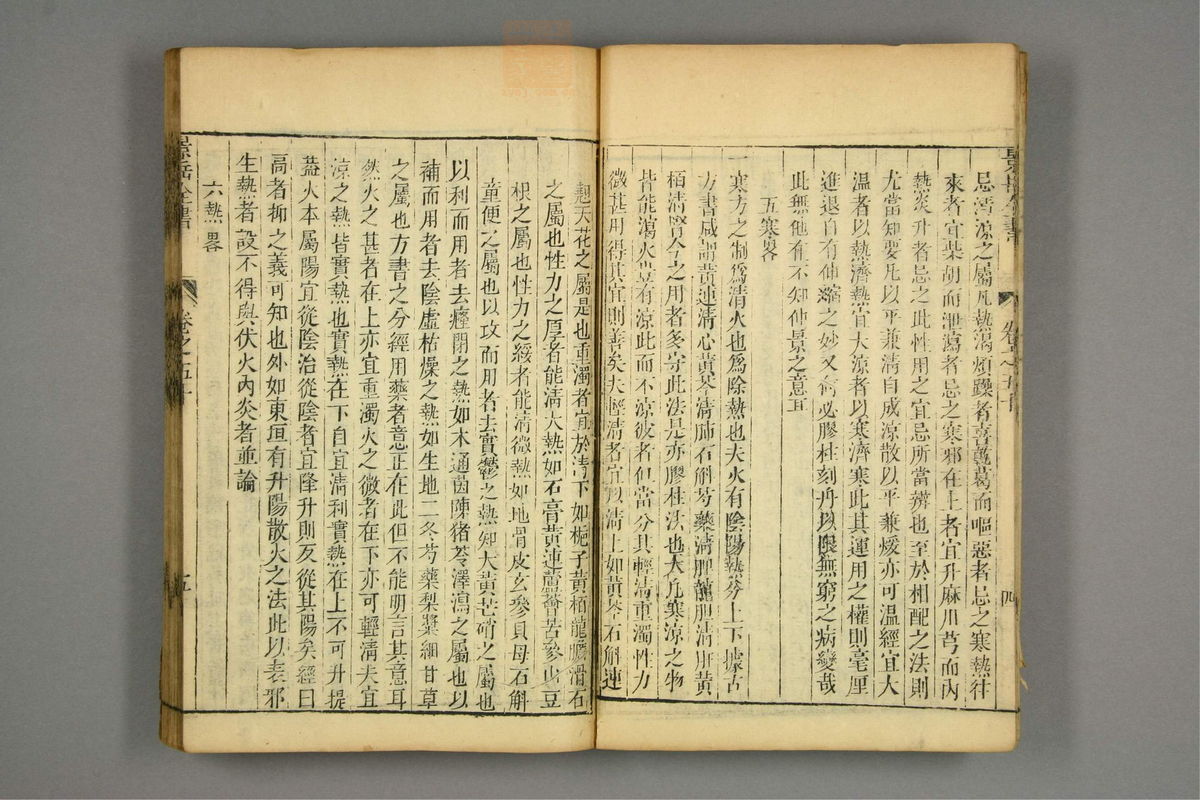 景岳全書 卷之五十 四
忌清凉之屬凡熱渴煩躁者喜乾葛而嘔惡者忌之寒熱往
來者宜柴胡而泄瀉者忌之寒邪在上者宜升麻川芎而内
熱炎升者忌之此性用之宜忌所當辨也至於相配之法則
尤當知要凡以平兼清自成凉散以平兼煖亦可溫經宜大
溫者以熱濟熱宜大凉者以寒濟寒此其運用之權則毫厘
進退自有伸縮之妙又何必膠柱刻丹以限無窮之病變哉
此無他有不知仲景之意耳
五寒畧
一寒方之制爲清火也爲除熱也夫火有陰陽熱分上下據古
方書咸謂黄連清心黄芩清肺石斛芍藥清脾龍胆清肝黄
栢清腎今之用者多守此法是亦膠柱法也大凡寒凉之物
皆能瀉火豈有凉此而不凉彼者但當分其輕清重濁性力
微甚用得其宜則善矣夫輕清者宜以清上如黄芩石斛連
翹天花之屬是也重濁者宜於清下如梔子黄栢龍膽滑石
之屬也性力之厚者能清大熱如石膏黄連蘆薈苦參山豆
根之屬也性力之緩者能清微熱如地骨皮玄參貝母石斛
童便之屬也以攻而用者去實鬱之熱如大黄芒硝之屬也
以利而用者去癃閉之熱如木通茵陳猪苓澤瀉之屬也以
補而用者去陰虚枯燥之熱如生地二冬芍藥梨漿細甘草
之屬也方書之分經用藥者意正在此但不能明言其意耳
然火之甚者在上亦宜重濁火之微者在下亦可輕清夫宜
凉之熱皆實熱也實熱在下自宜清利實熱在上不可升提
葢火本屬陽宜從陰治從陰者宜降升則反從其陽矣經曰
高者抑之義可知也外如東垣有升陽散火之法此以表邪
生熱者設不得與伏火内炎者並論
六熱畧
景岳全書 卷之五十 五